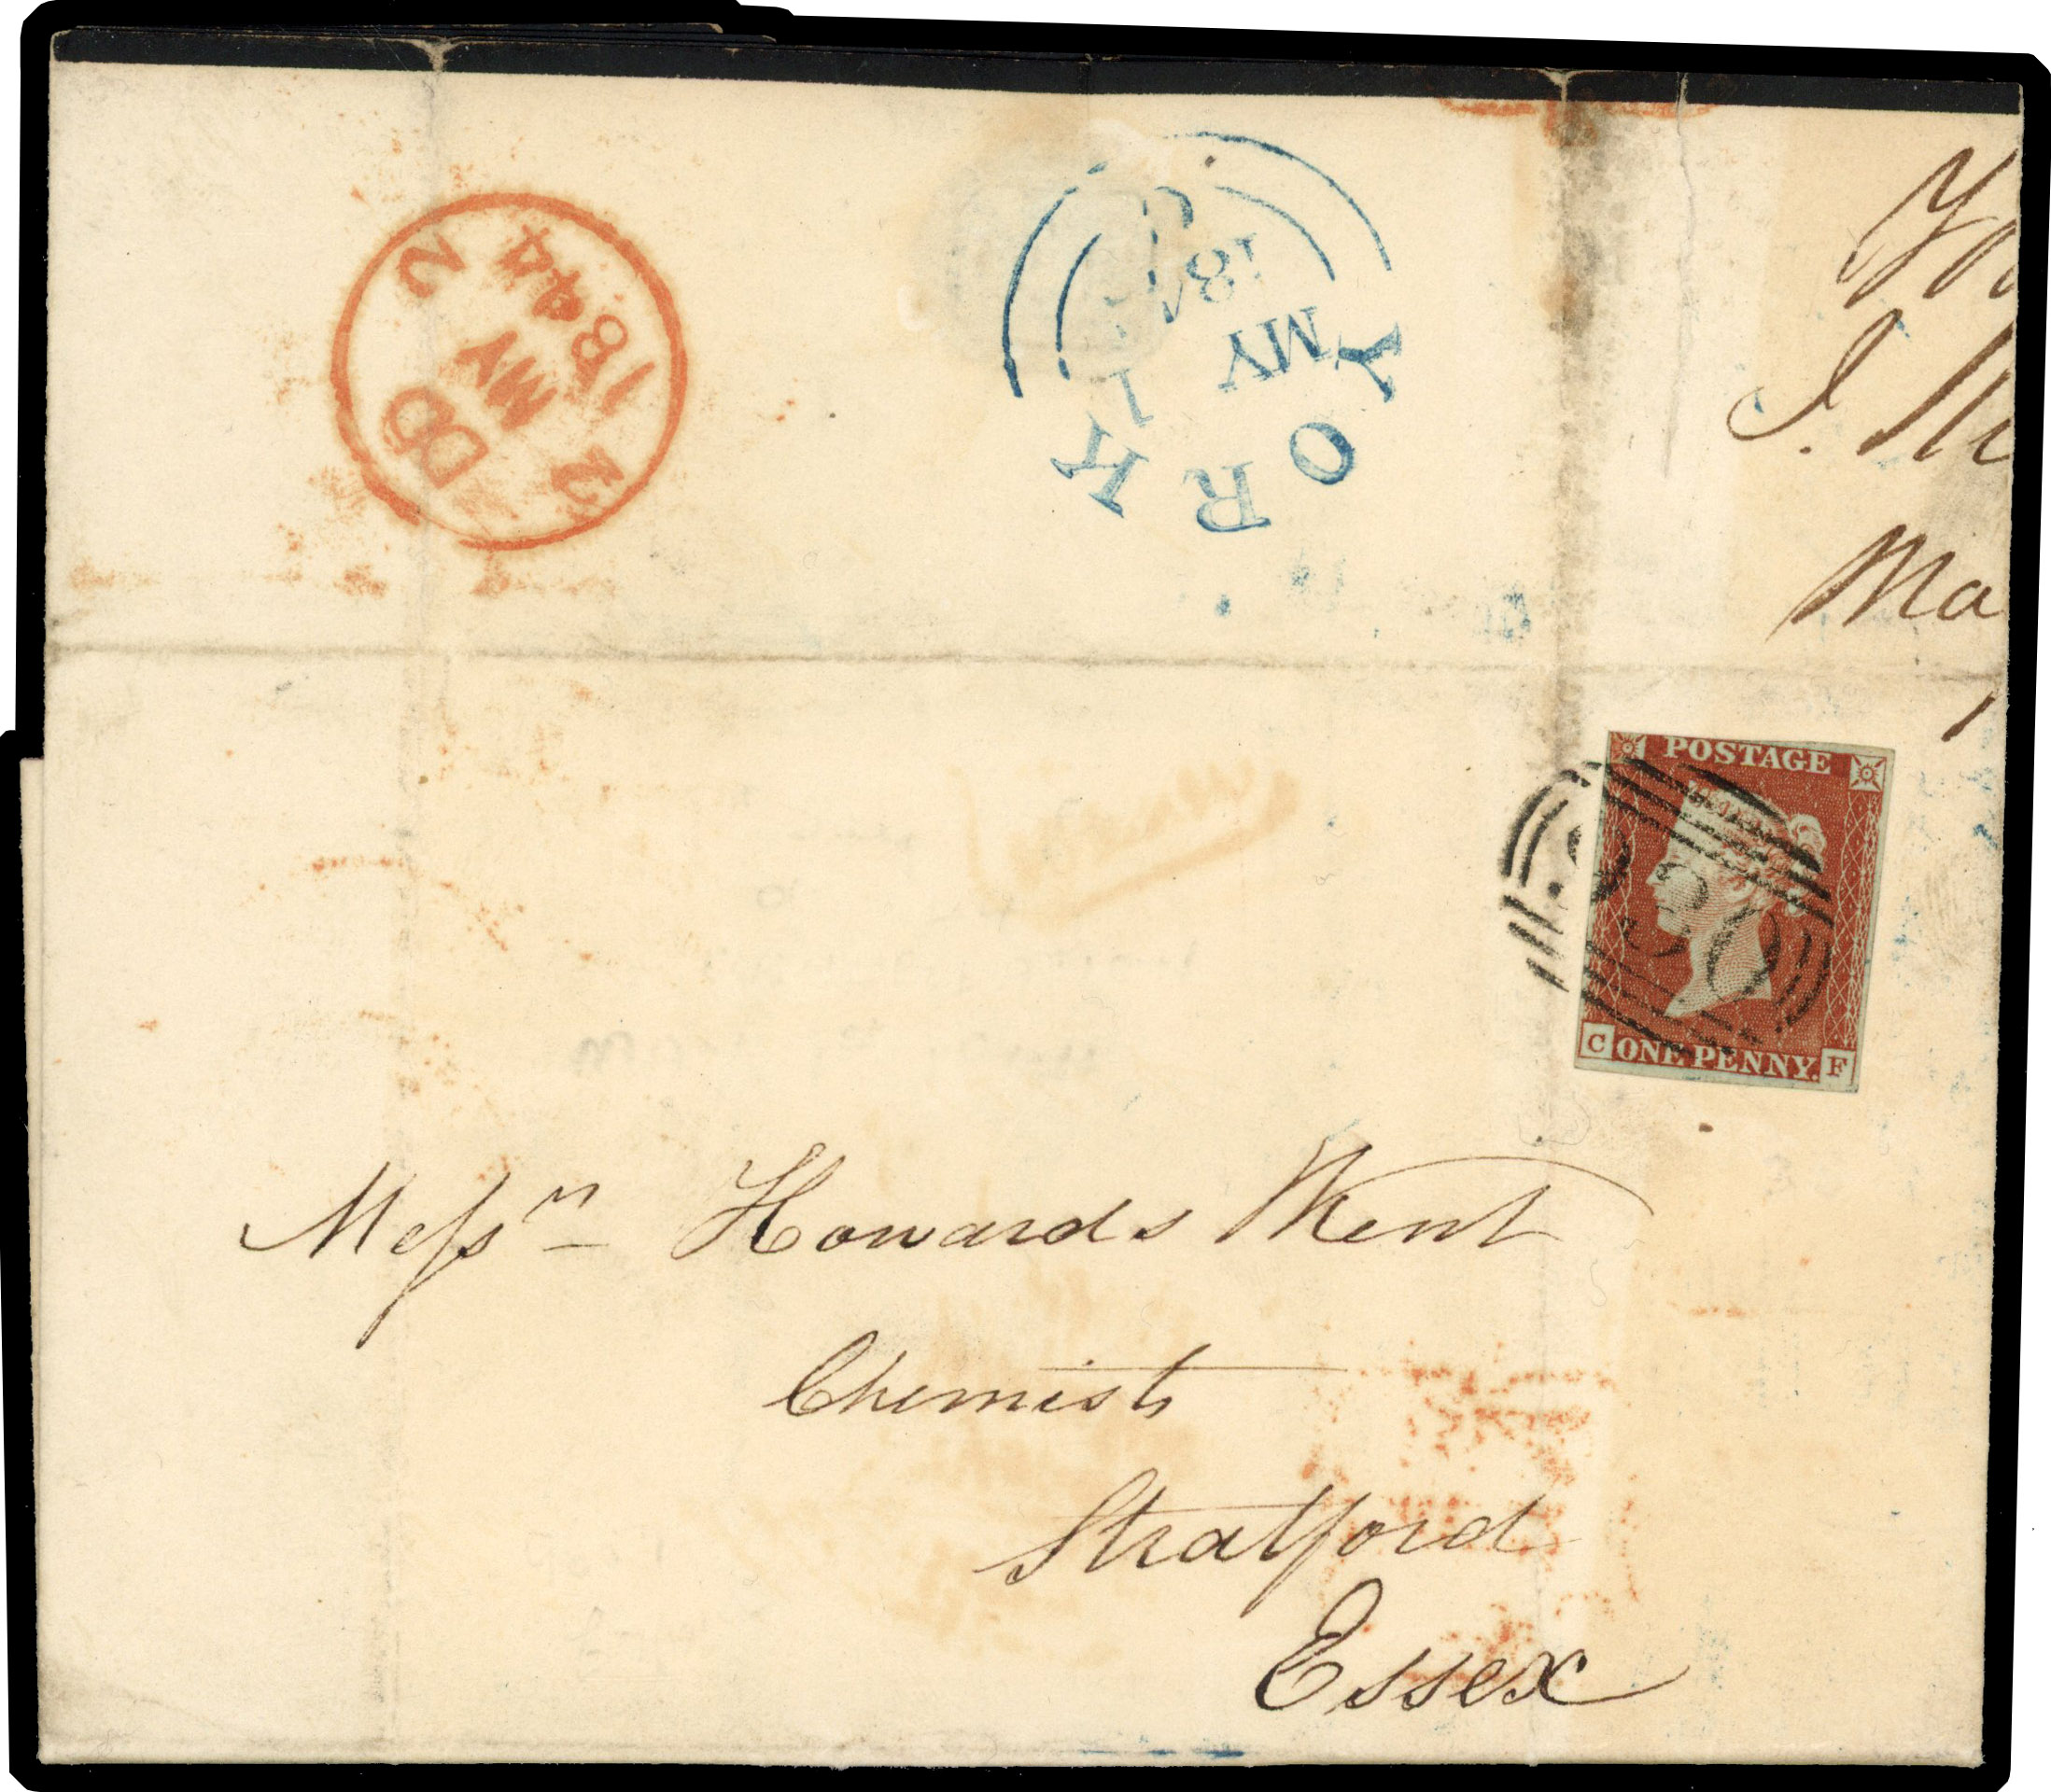 2
DB
MY
2
1844
YORK
MY
1
184
Yo
J.
Ma
POSTAGE
930
C ONE PENNY. F
Messrs Howards & Kent
Chemists
Stratford
Essex